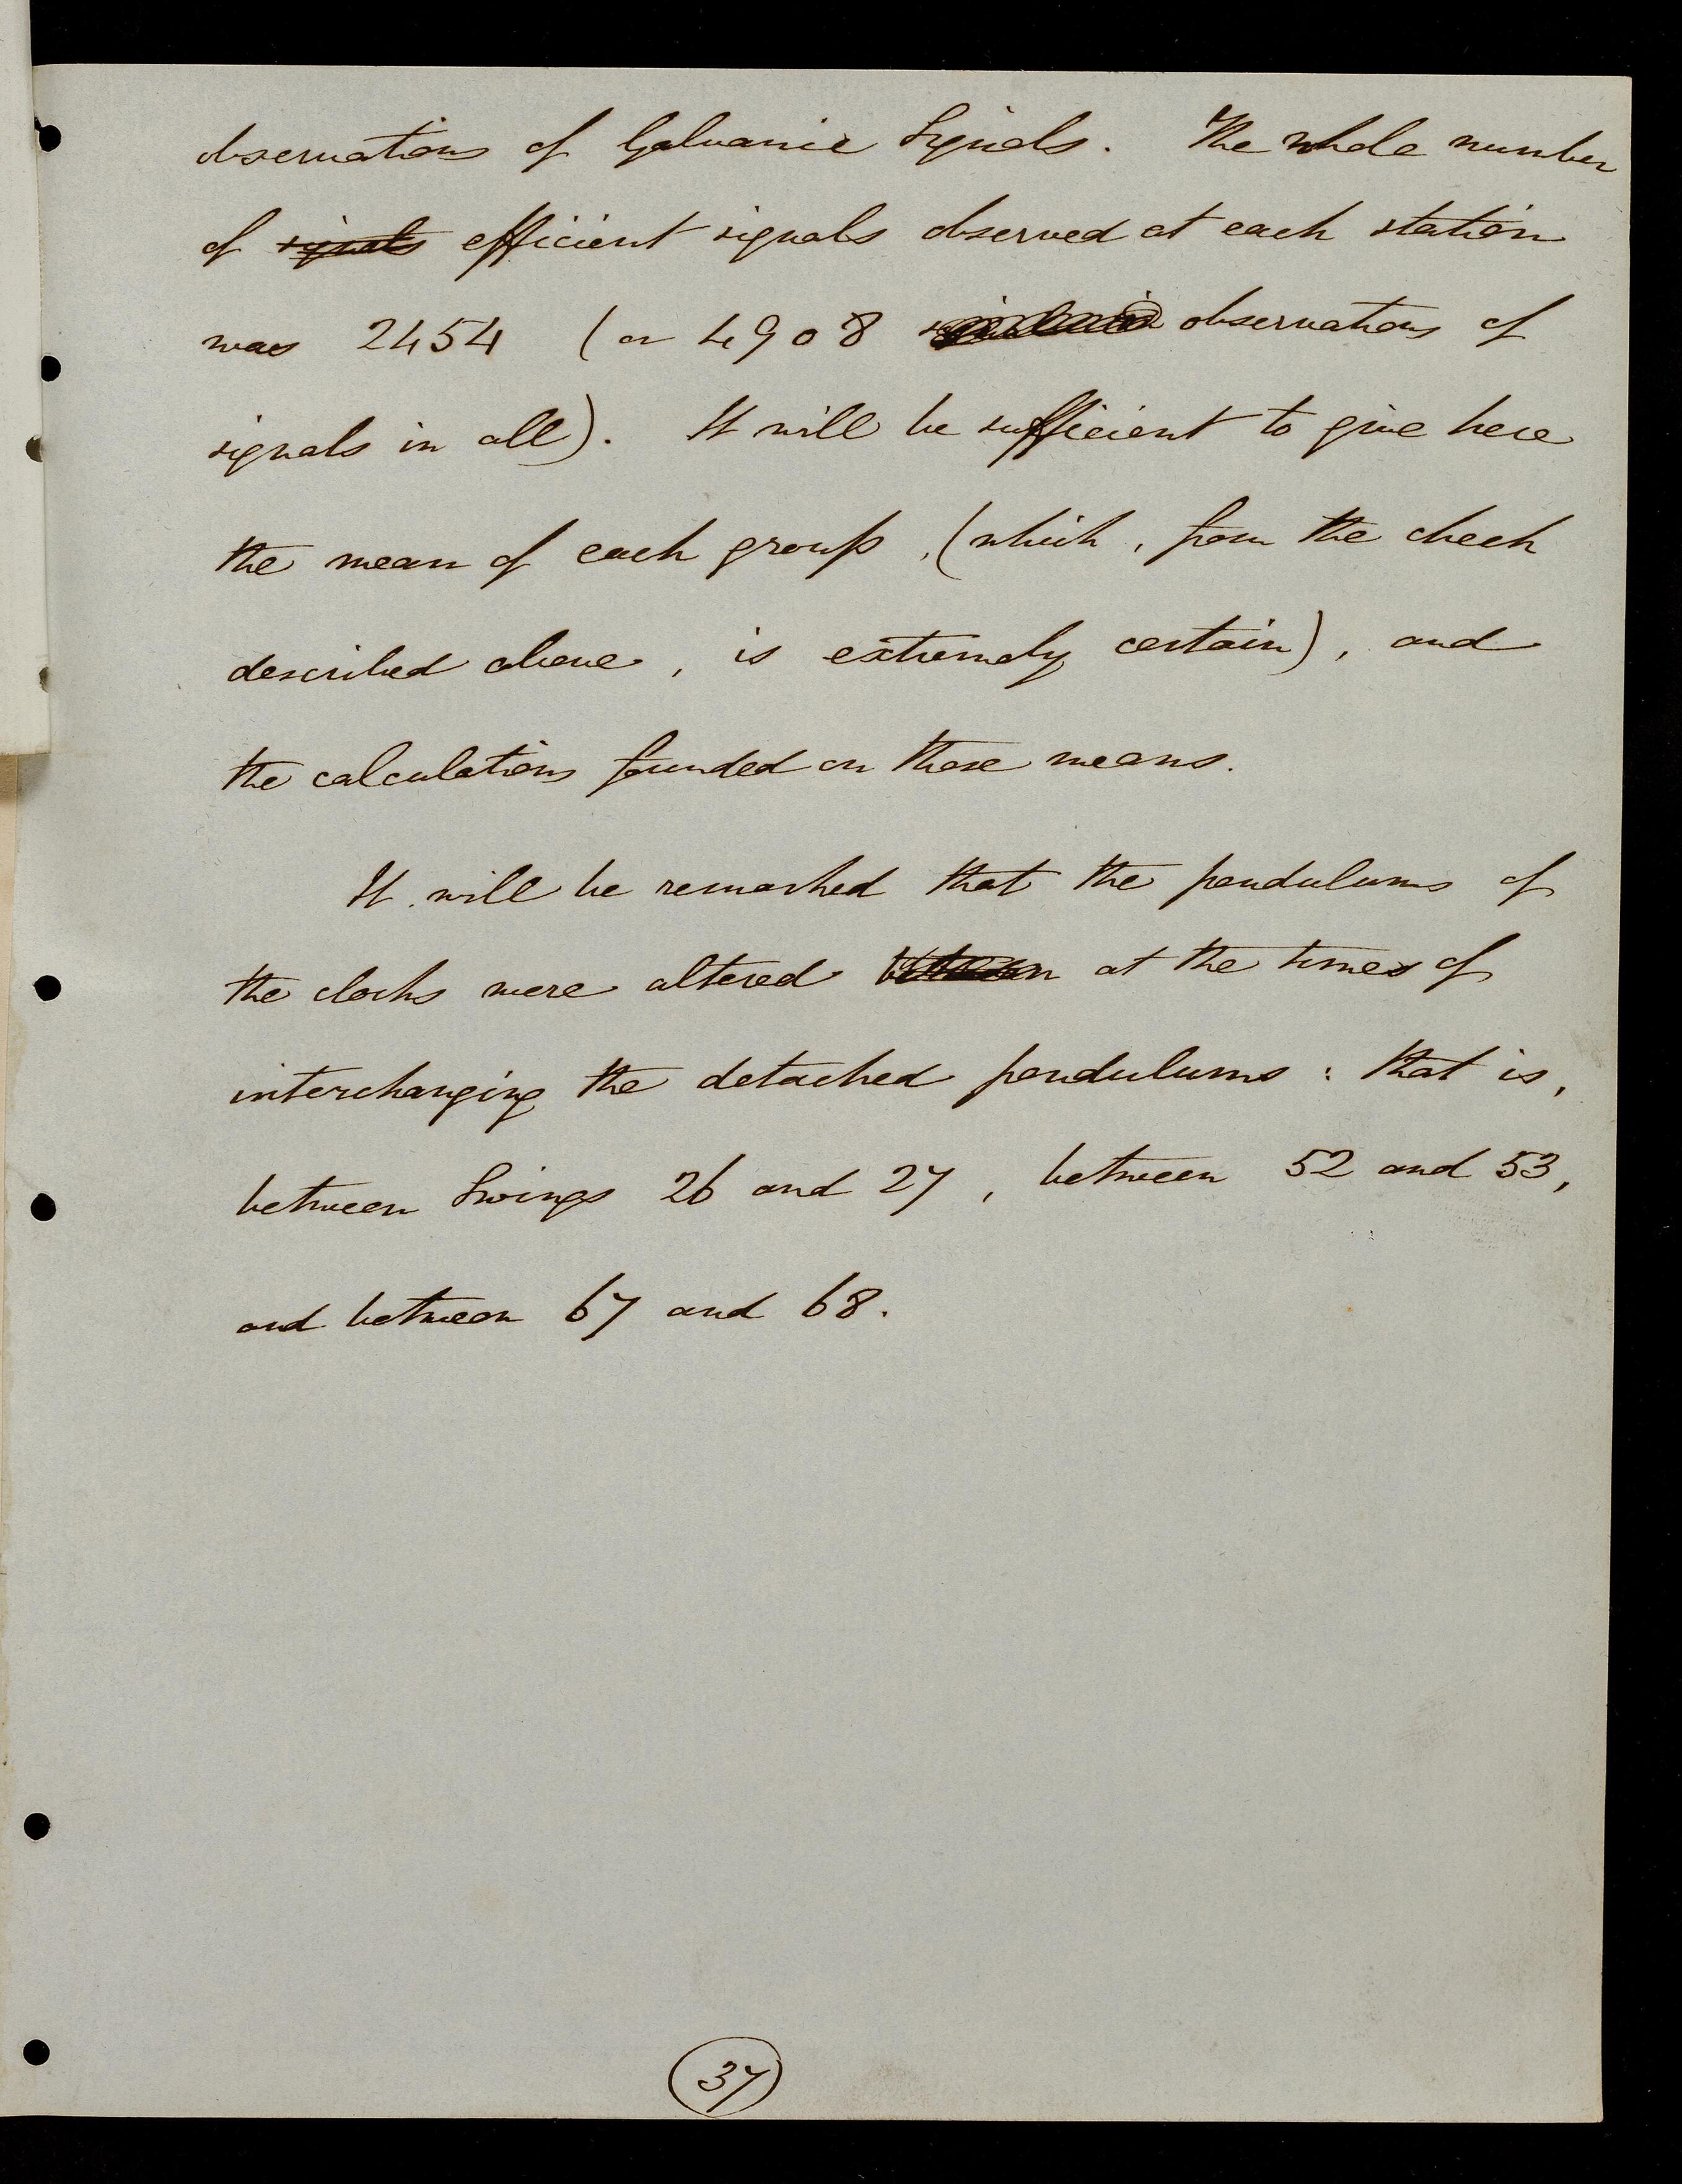 observations of Galvanic Signals. The whole number
of signals efficient signals observed at each station
was 2454 (or 4908 observations of
signals in all). It will be sufficient to give here
the mean of each group, (which, from the check
described above, is extremely certain), and
the calculations founded on those means.
It will be remarked that the pendulums of
the clocks were altered between at the times of
interchanging the detached pendulums: that is,
between Swings 26 and 27, between 52 and 53,
and between 67 and 68.
37